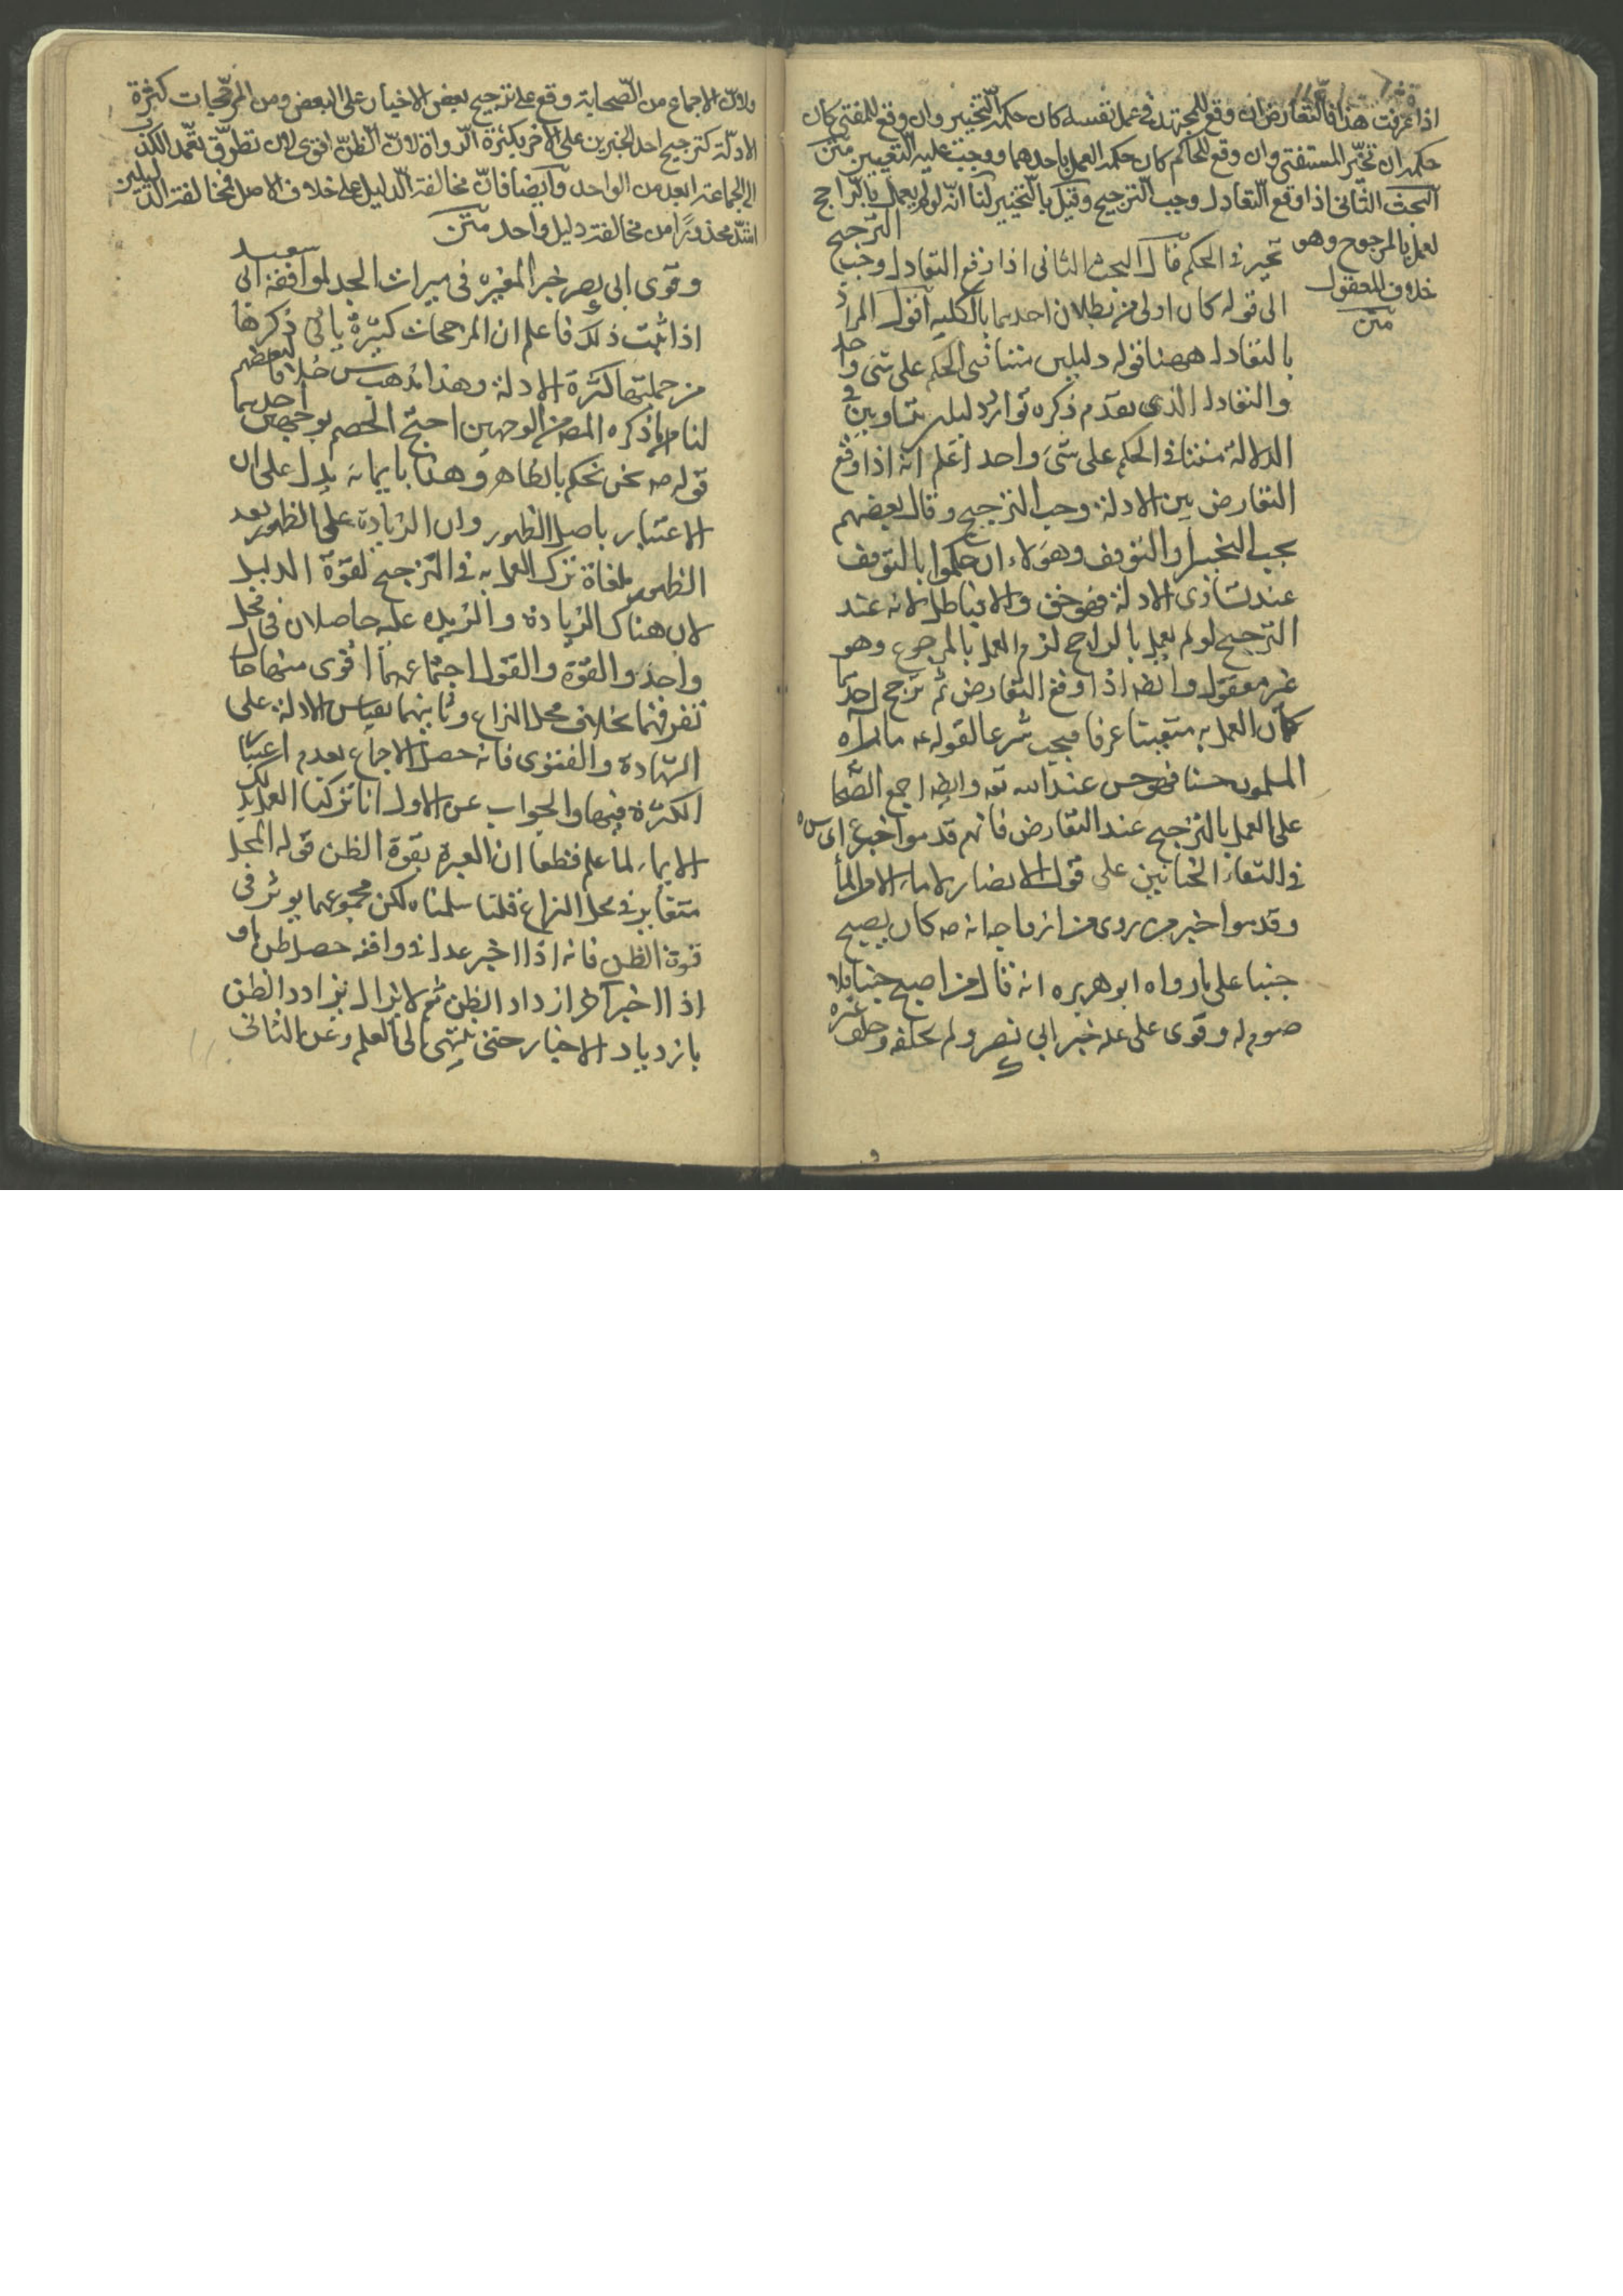 اذا عرفت هذا فالتعارض ان وقع للمجتهد في عمل نفسه كان حكمه التخيير وان وقع للمفتي كان
حكمه ان تخيّر المستفتي وان وقع للحاكم كان حكمه العمل باحدهما ووجب عليه التعيين متن
البحث الثاني اذا وقع التعادل وجب الترجيح وقيل بالتخيير لنا انه لو لم يعمل بالراجح
لعمل بالمرجوح وهو
خلاف المعقول
متن
الترجيح
تخير في الحكم قال البحث الثاني اذا وقع التعادل وجب
الى قوله كان اولى من بطلان احدهما بالكليه اقول المراد
بالتعادل ههنا قوله دليلين متنافيي الحكم على شئ واحد
والتعادل الذي تقدم ذكره توارد دليلين متساويين في
الدلالة متنافي الحكم على شئ واحد اعلم انه اذا وقع
التعارض بين الادلة وجب الترجيح وقال بعضهم
يجب التخيير او التوقف وهؤلاء ان حكموا بالتوقف
عند تساوى الادلة فهو حق والا فباطل لانه عند
الترجيح لو لم يعمل بالراجح لزم العمل بالمرجوح وهو
غير معقول وايضا اذا وقع التعارض ثم ترجح احدهما
كان العمل به متعينا عرفا فيجب شرعا لقوله ما راه
المسلمون حسنا فهو حسن عند الله وايضا اجمع الصحا
على العمل بالترجيح عند التعارض فانهم قدموا خبر
في التقاء الختانين على قول الانصار الماء من الماء
وقدموا خبر من روى من ازواجه انه ص كان يصبح
جنبا على ما رواه ابو هريره انه قال من اصبح جنبا فلا
صوم له وقوى على ع خبر ابي بصر ولم يحلفه وحلف غيره
ولان الاجماع من الصحابة وقع على ترجيح بعض الاخبار على البعض ومن المرجّحات كثرة
الادلة كترجيح احد الخبرين على الاخر بكثرة الرواة لان الظن اقوى لان تطرق تعمد الكذب
الى الجماعة ابعد من الواحد وايضا فان مخالفة الدليل على خلاف الاصل فمخالفة الدليلين
اشد محذورا من مخالفة دليل واحد متن
وقوى ابي بصر خبر المغيره في ميراث الجد لموافقة ابي سعيد
اذا ثبت ذلك فاعلم ان المرجحات كثيرة ياتي ذكرها
من جملتها كثرة الادلة وهذا مذهب س خلافا لبعضهم
لنا ما ذكره المص من الوجهين احتج الخصم بوجهين احدهما
قوله ص نحن نحكم بالظاهر وهذا بايمائه يدل على ان
الاعتبار باصل الظهور وان الزيادة على الظهور بعد
الظهور ملغاة ترك العمل به في الترجيح لقوة الدليل
لان هناك الزيادة والمزيد عليه حاصلان في محل
واحد والقوة والقول اجتماعهما اقوى منهما حال
تفرقهما بخلاف محل النزاع وثانيهما بقياس الادلة على
الشهادة والفتوى فانه حصل الاجماع بعدم اعتبار
الكثرة فيهما والجواب عن الاول انا تركنا العمل بذلك
الايماء لما علم قطعا ان العبرة بقوة الظن قوله المحل
متغاير في محل النزاع قلنا سلمناه لكن مجموعهما يوثر في
قوة الظن فانه اذا اخبر عدل في واقعة حصل ظن ما و
اذا اخبر آخر ازداد الظن ثم لا يزال يتزايد الظن
بازدياد الاخبار حتى ينتهي الى العلم وعن الثاني